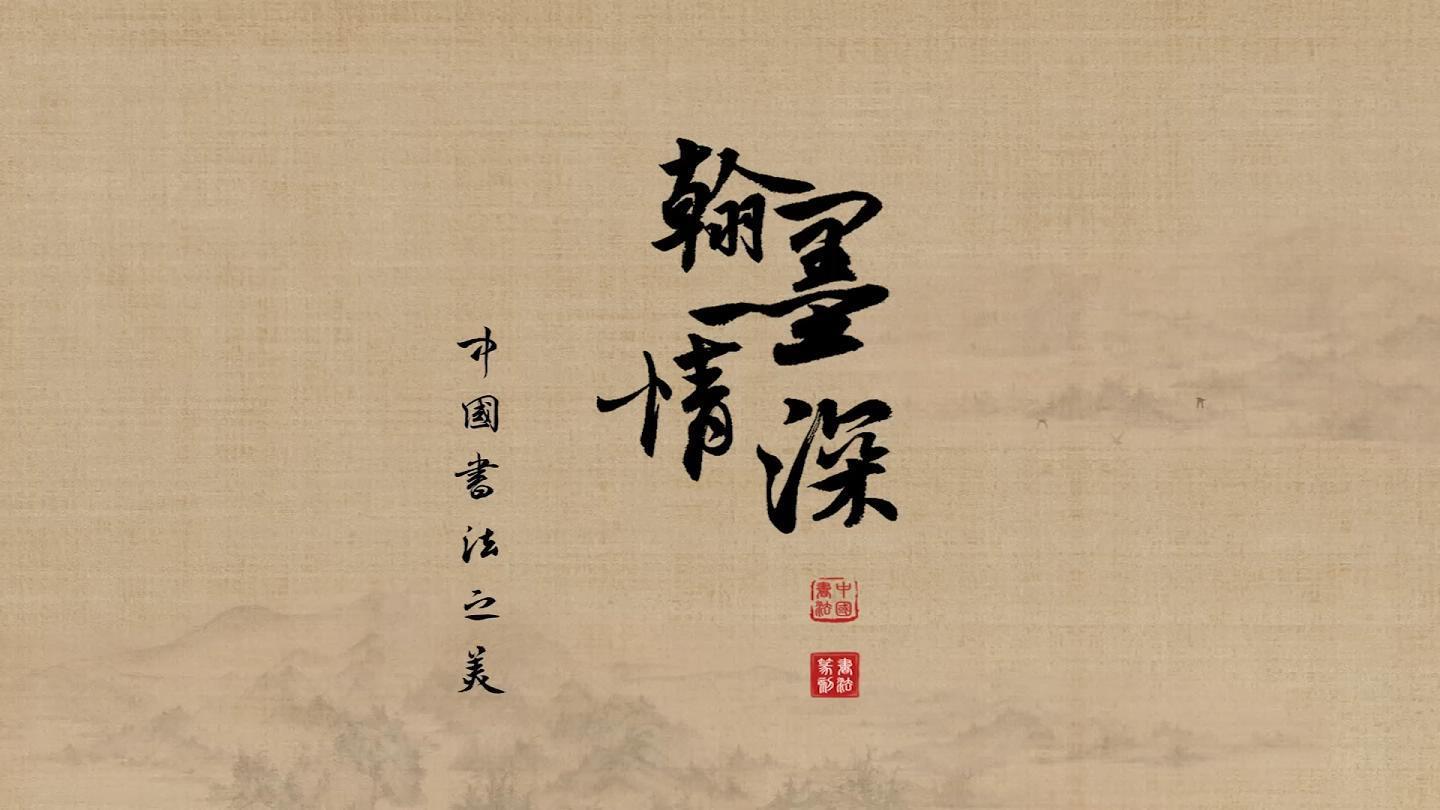 翰墨情深
中國書法之美
中國書法
書法篆刻